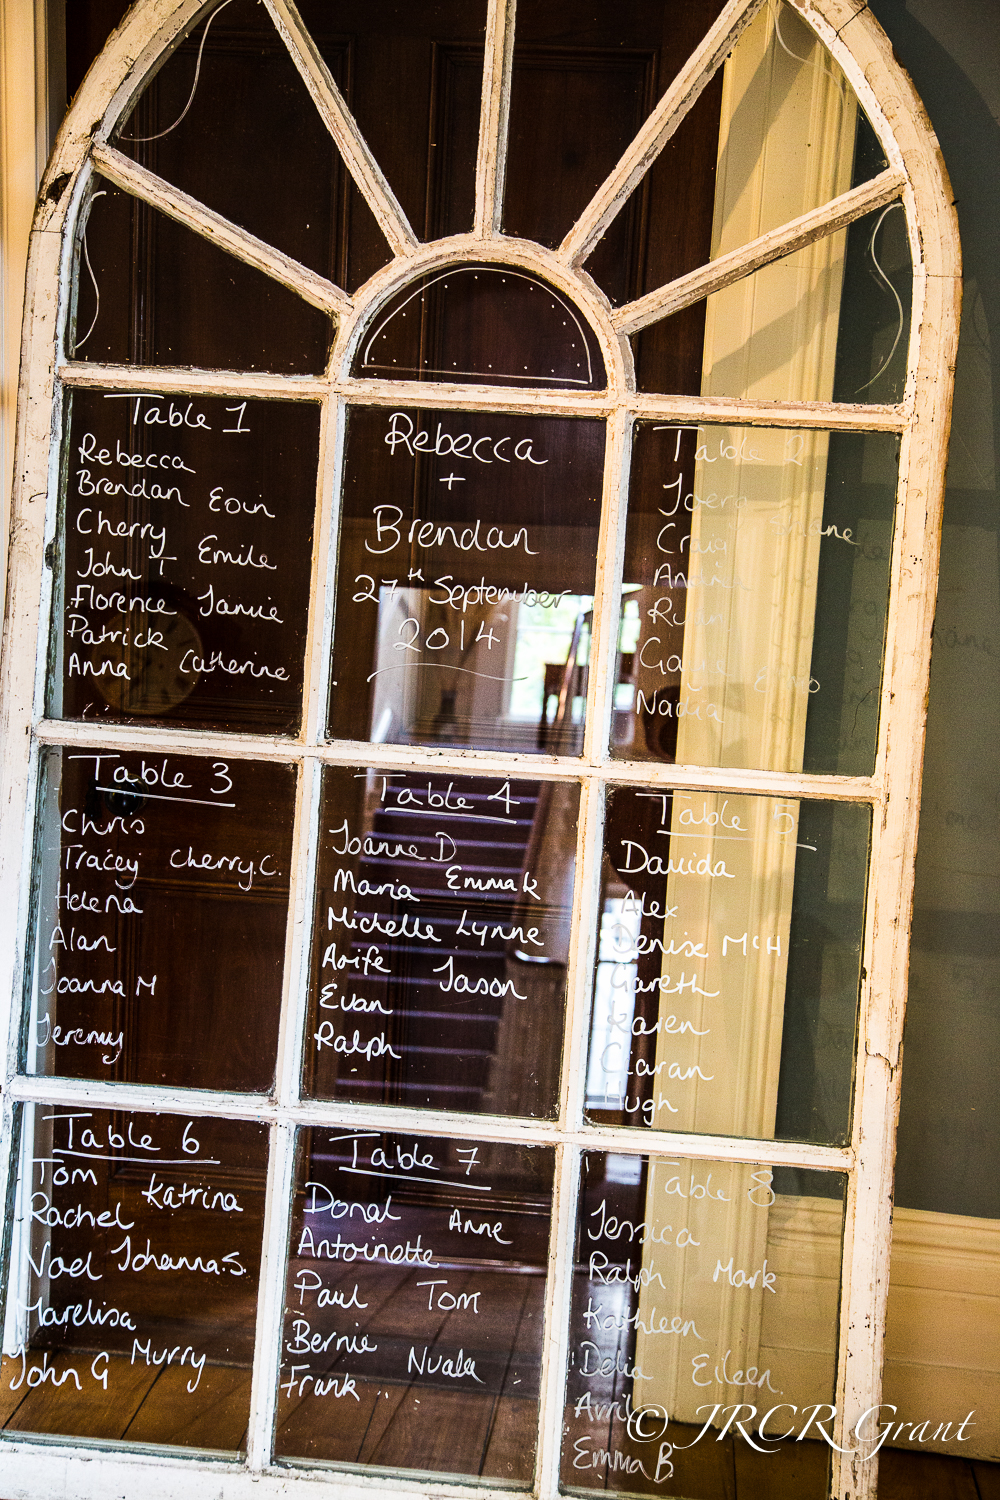 Table 1
Rebecca
Brendan Eoin
Cherry
John T Emile
Florence Jamie
Patrick
Anna Catherine
Rebecca
+
Brendan
27th September
2014
Table 2
Craig Shane
Andrew
Ruan
Nadia
Table 3
Chris
Tracey Cherry.C.
Helena
Alan
Joanna M
Jeremy
Table 4
Joanne D
Maria Emma K
Michelle Lynne
Aoife Jason
Evan
Ralph
Table 5
Davida
Alex
Denise McH
Gareth
Karen
Ciaran
Hugh
Table 6
Tom Katrina
Rachel
Noel Johanna.S.
Marelisa
John G Murry
Table 7
Donal Anne
Antoinette
Paul Tom
Bernie
Frank Nuala
Table 8
Jessica
Ralph Mark
Kathleen
Delia Eileen
Avril
Emma B
© JRCR Grant